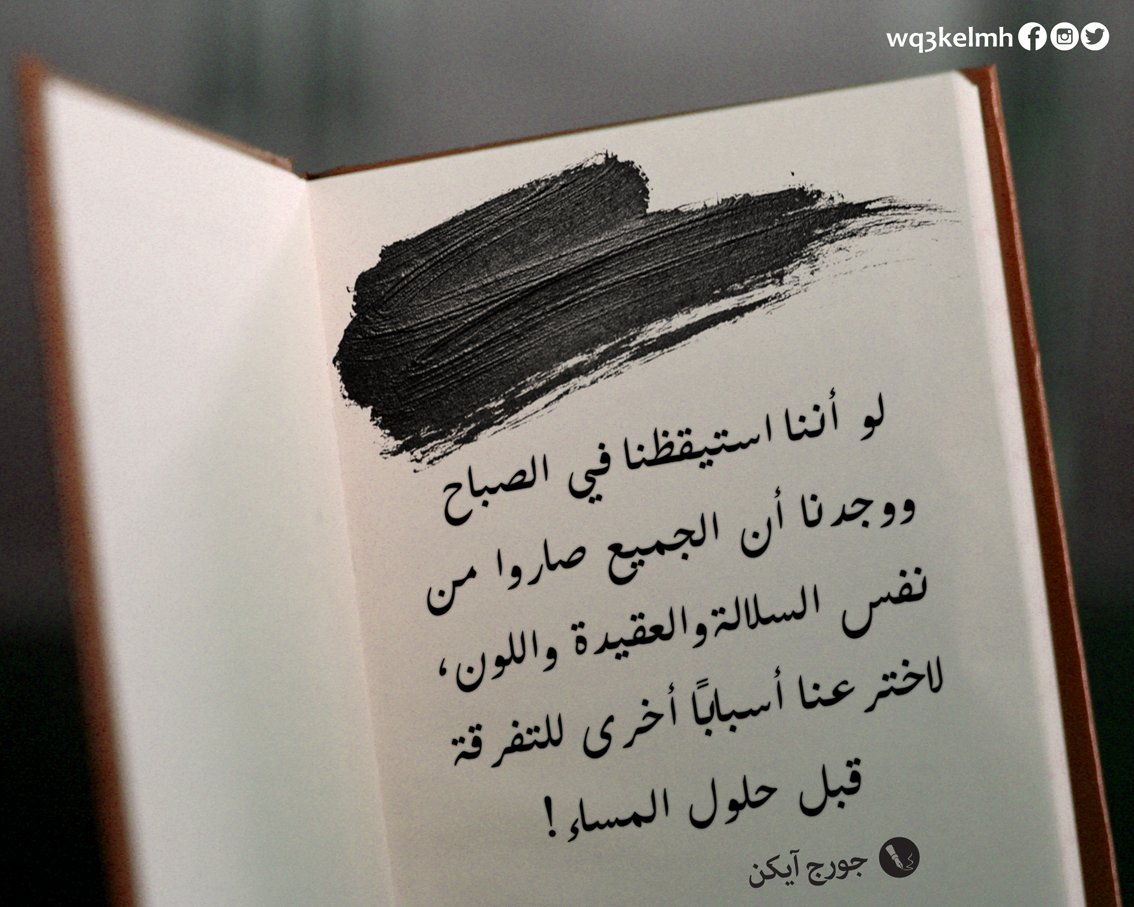 wq3kelmh
لو أننا استيقظنا في الصباح
ووجدنا أن الجميع صاروا من
نفس السلالة والعقيدة واللون،
لاخترعنا أسبابًا أخرى للتفرقة
قبل حلول المساء!
جورج آيكن